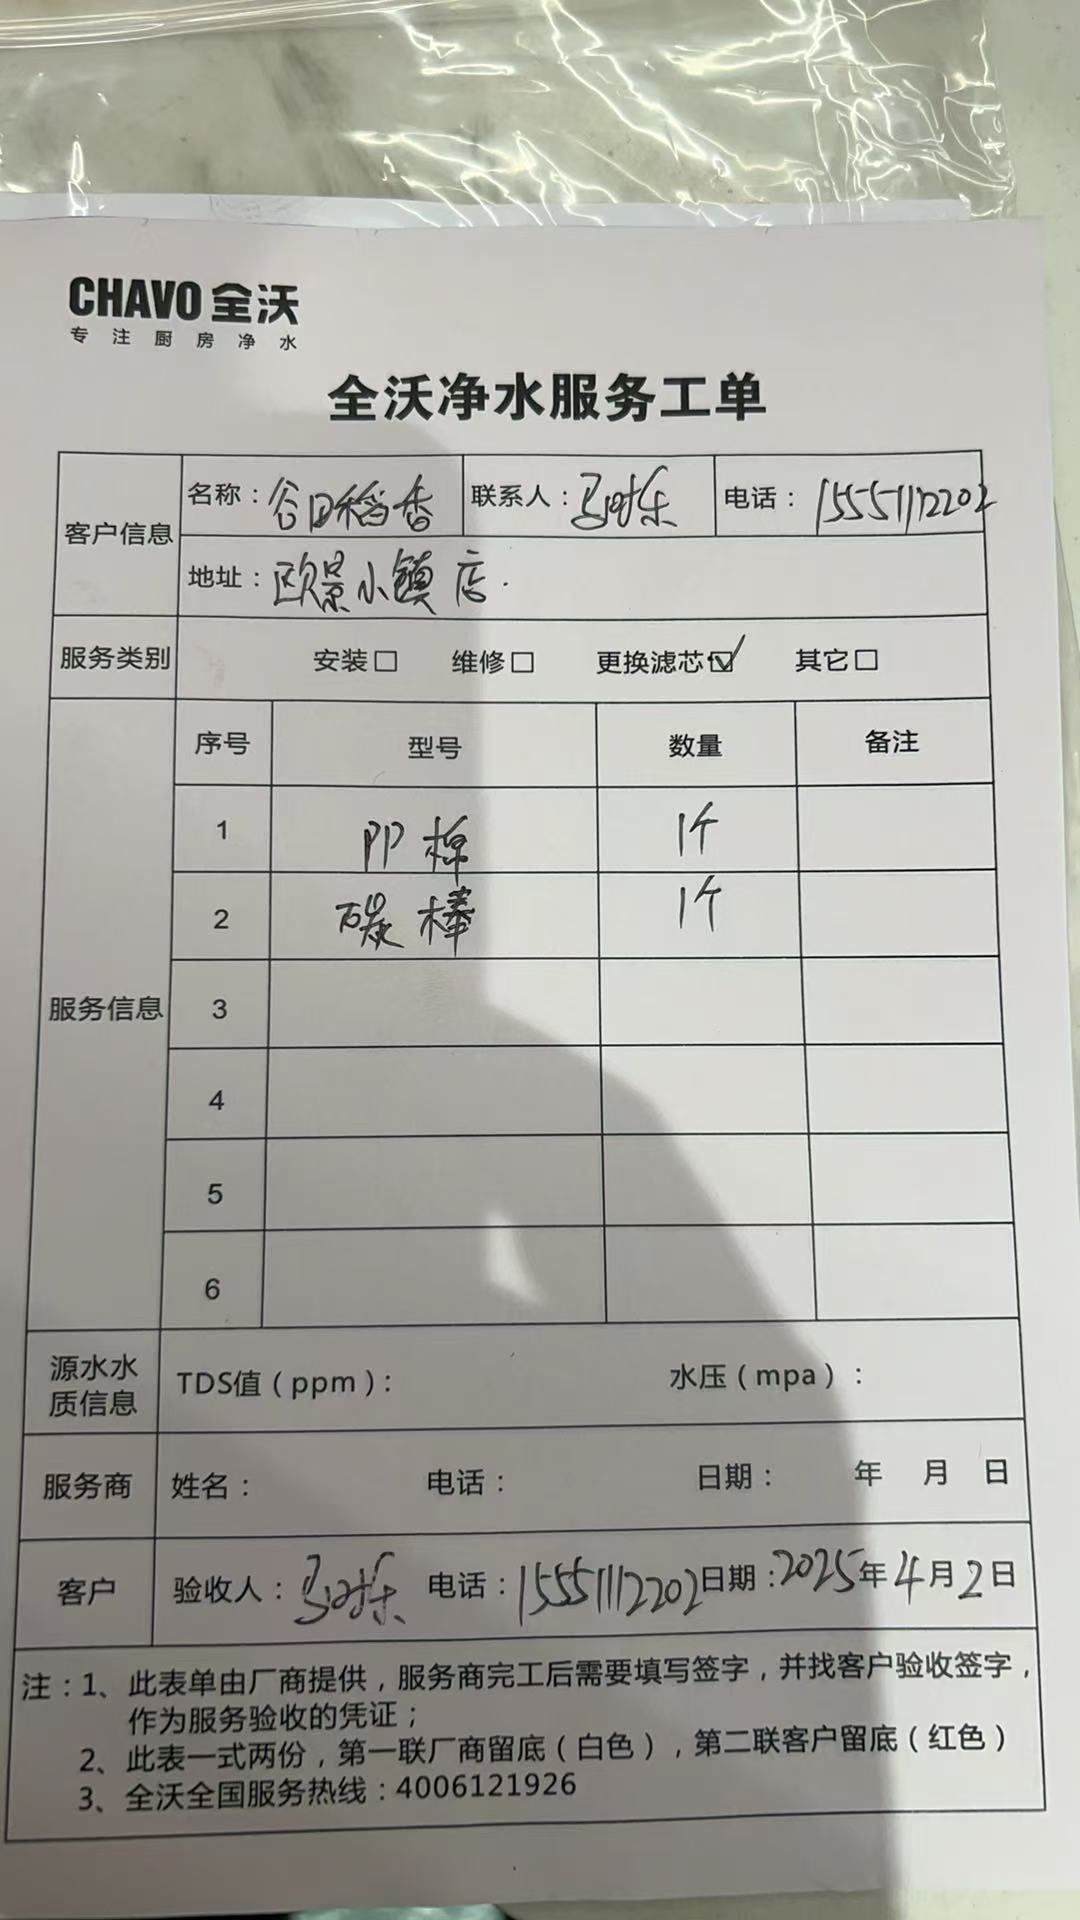 CHAVO 全沃
专注厨房净水
全沃净水服务工单
客户信息
名称：谷田稻香 联系人： 电话：15551112202
地址：欧景小镇店.
服务类别 安装□ 维修□ 更换滤芯☑ 其它□
服务信息
序号 型号 数量 备注
1 PP棉 1个
2 碳棒 1个
3
4
5
6
源水水质信息 TDS值（ppm）： 水压（mpa）：
服务商 姓名： 电话： 日期： 年 月 日
客户 验收人： 电话：15551112202 日期：2025年4月2日
注：1、此表单由厂商提供，服务商完工后需要填写签字，并找客户验收签字，
作为服务验收的凭证；
2、此表一式两份，第一联厂商留底（白色），第二联客户留底（红色）
3、全沃全国服务热线：4006121926